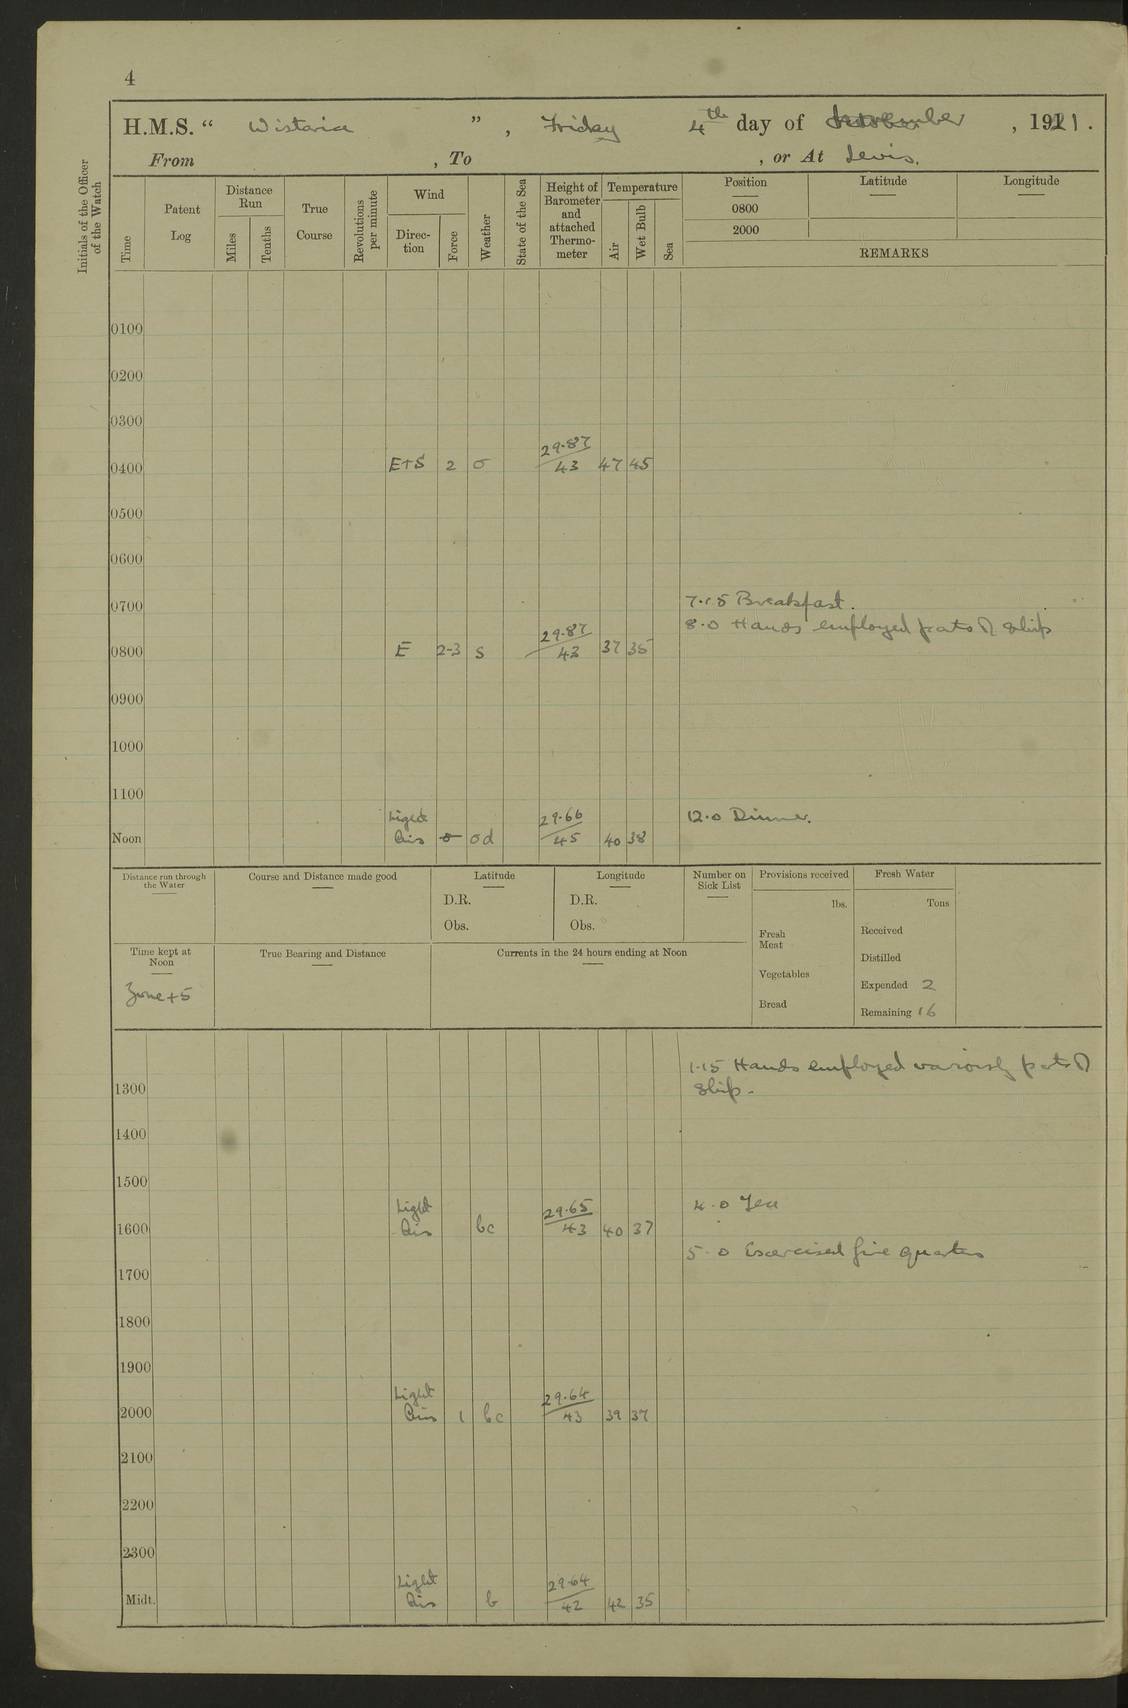 4
H.M.S. “ Wistaria ” , Friday 4th day of November , 1921 .
From , To , or At Levis.
Initials of the Officer of the Watch
Time
Patent Log
Distance Run
Miles
Tenths
True Course
Revolutions per minute
Wind
Direc-tion
Force
Weather
State of the Sea
Height of Barometer and attached Thermo-meter
Temperature
Air
Wet Bulb
Sea
Position Latitude Longitude
0800
2000
REMARKS
0100
0200
0300
0400 E+S 2 o 29.87/43 47 45
0500
0600
0700 7.15 Breakfast.
8.0 Hands employed parts of ship
0800 E 2-3 s 29.87/43 37 35
0900
1000
1100
Noon Light Airs od 29.66/45 40 38 12.0 Dinner.
Distance run through the Water
Course and Distance made good
Latitude
D.R.
Obs.
Longitude
D.R.
Obs.
Number on Sick List
Provisions received
lbs.
Fresh Meat
Vegetables
Bread
Fresh Water
Tons
Received
Distilled
Expended 2
Remaining 16
Time kept at Noon
Zone +5
True Bearing and Distance
Currents in the 24 hours ending at Noon
1.15 Hands employed variously parts of
ship.
1300
1400
1500
4.0 Tea
1600 Light Airs bc 29.65/43 40 37
5.0 Exercised fire quarters
1700
1800
1900
2000 Light Airs 1 bc 29.64/43 39 37
2100
2200
2300
Midt. Light Airs b 29.64/42 42 35